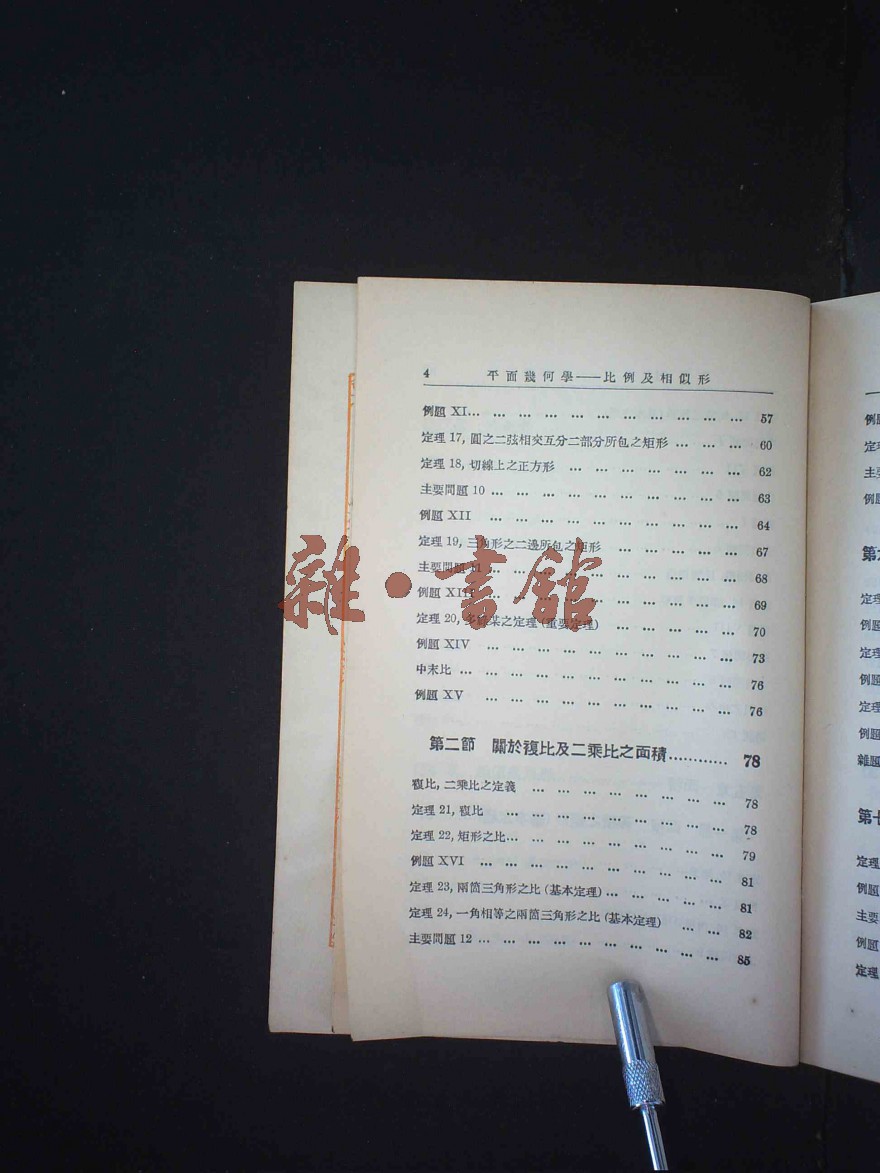 4 平面幾何學——比例及相似形
例題 XI... ... ... ... ... ... ... ... ... ... ... 57
定理 17, 圓之二弦相交互分二部分所包之矩形 ... ... ... 60
定理 18, 切線上之正方形 ... ... ... ... ... ... ... 62
主要問題 10 ... ... ... ... ... ... ... ... ... ... 63
例題 XII ... ... ... ... ... ... ... ... ... ... 64
定理 19, 三角形之二邊所包之矩形 ... ... ... ... ... ... 67
主要問題 11 ... ... ... ... ... ... ... ... ... ... 68
例題 XIII ... ... ... ... ... ... ... ... ... ... 69
定理 20, 多祿某之定理 (重要定理) ... ... ... ... ... 70
例題 XIV ... ... ... ... ... ... ... ... ... ... 73
中末比 ... ... ... ... ... ... ... ... ... ... ... 76
例題 XV ... ... ... ... ... ... ... ... ... ... 76
第二節 關於複比及二乘比之面積............ 78
複比, 二乘比之定義 ... ... ... ... ... ... ... ... 78
定理 21, 複比 ... ... ... ... ... ... ... ... ... 78
定理 22, 矩形之比... ... ... ... ... ... ... ... ... 79
例題 XVI ... ... ... ... ... ... ... ... ... ... 81
定理 23, 兩箇三角形之比 (基本定理) ... ... ... ... ... 81
定理 24, 一角相等之兩箇三角形之比 (基本定理) ... ... 82
主要問題 12 ... ... ... ... ... ... ... ... ... ... 85
雜·書館
例
定
主
例
第
定理
例題
定理
例題
定理
例題
雜題
第十
定理
例題
主要
例題
定理